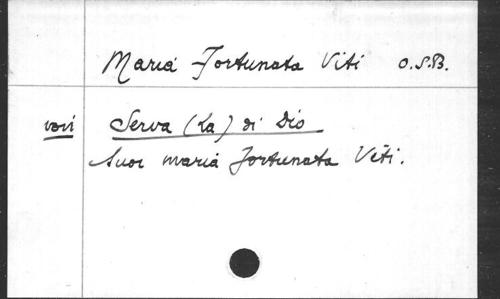 Maria Fortunata Viti O.S.B.
vovi Serva (La) di Dio
Suor Maria Fortunata Viti.